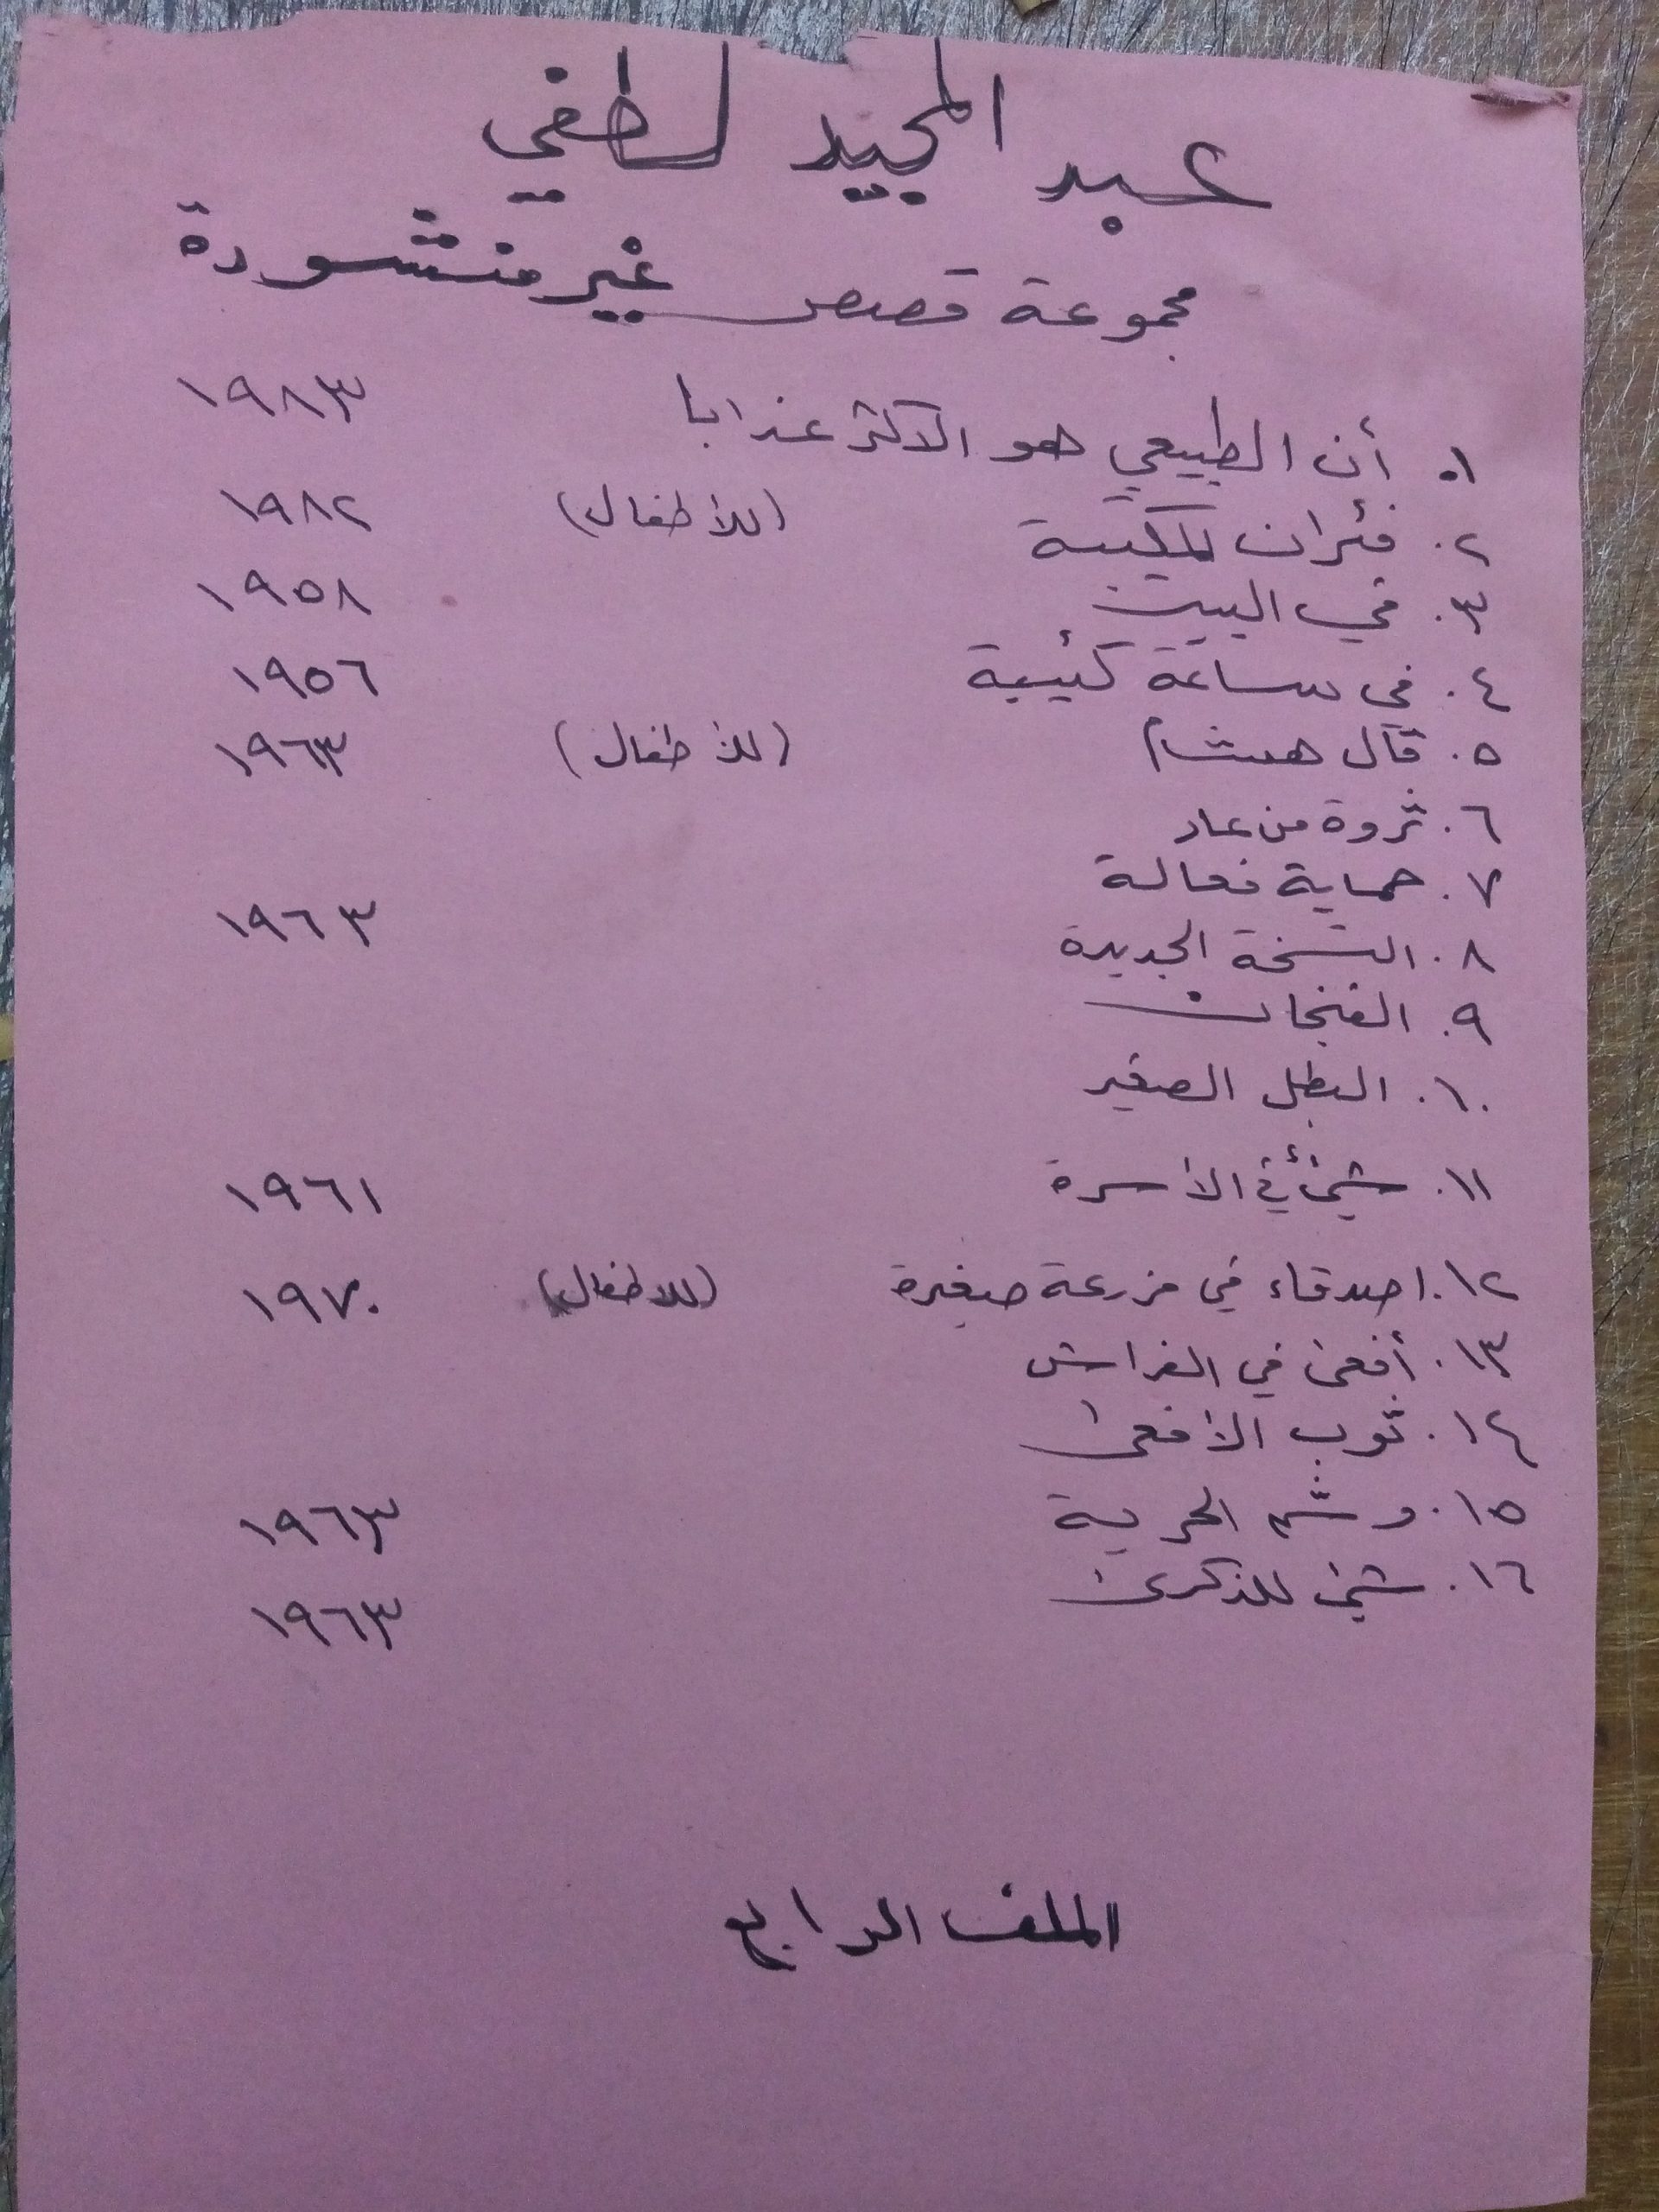 عبد المجيد لطفي
مجموعة قصص غير منشورة
١. أن الطبيعي هو الاكثر عذابا ١٩٨٣
٢. فئران المكتبة (للأطفال) ١٩٨٢
٣. في البيت ١٩٥٨
٤. في ساعة كئيبة ١٩٥٦
٥. قال هشام (للأطفال) ١٩٦٣
٦. ثروة من عار
٧. حماية فعالة
٨. النسخة الجديدة ١٩٦٣
٩. الفنجان
١٠. البطل الصغير
١١. شيء في الأسرة ١٩٦١
١٢. اصدقاء في مزرعة صغيرة (للاطفال) ١٩٧٠
١٣. أفعى في الفراش
١٤. ثوب الأفعى
١٥. وشم الحرية ١٩٦٣
١٦. شيء للذكرى ١٩٦٣
الملف الرابع